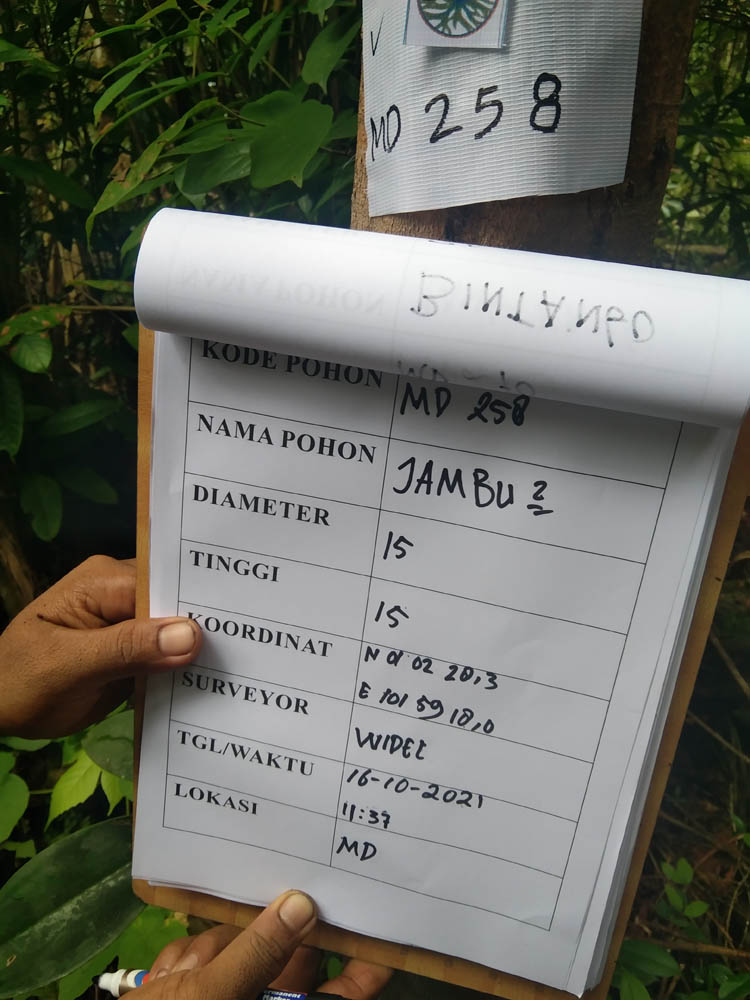 V
MD 258
BINTANGO
KODE POHON MD 258
NAMA POHON JAMBU 2
DIAMETER 15
TINGGI 15
KOORDINAT N 01 02 20,3
E 101 59 18,0
SURVEYOR WIDEL
TGL/WAKTU 16-10-2021
11:37
LOKASI MD